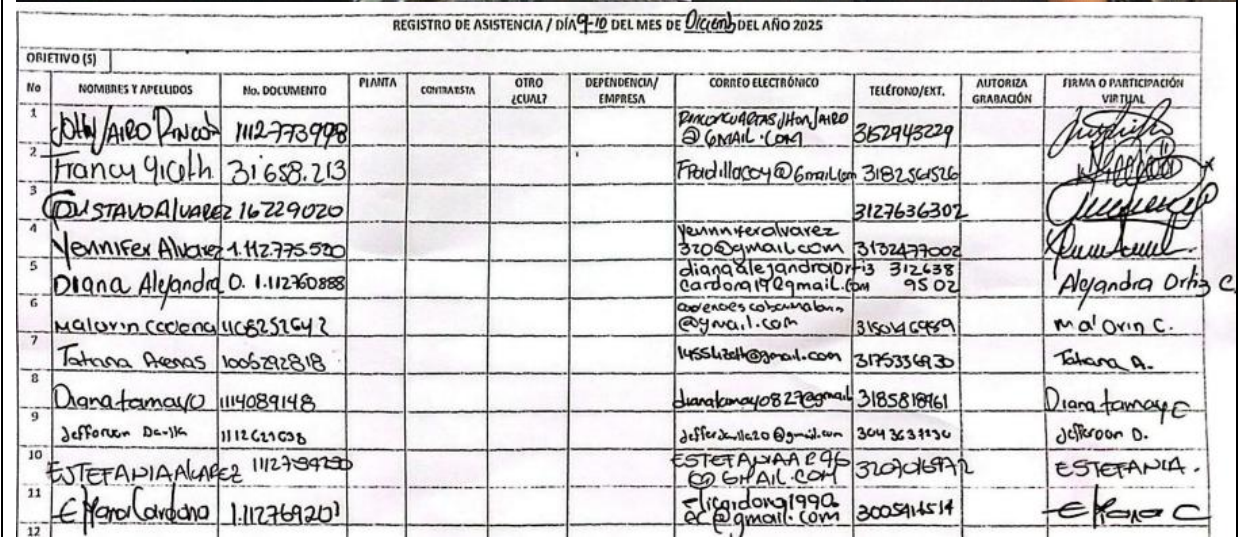 REGISTRO DE ASISTENCIA / DÍA 9-10 DEL MES DE Diciemb DEL AÑO 2025
OBJETIVO (S)
No NOMBRES Y APELLIDOS No. DOCUMENTO PLANTA CONTRATISTA OTRO ¿CUAL? DEPENDENCIA/ EMPRESA CORREO ELECTRÓNICO TELÉFONO/EXT. AUTORIZA GRABACIÓN FIRMA O PARTICIPACIÓN VIRTUAL
1 JOHN JAIRO RINCÓN 1112-773998 RINCONCUARTASJHONJAIRO @GMAIL.COM 3152943229
2 Francy 31658.213 @Gmail.com 3182561526
3 GUSTAVO ALVAREZ 16229020 3127636302
4 Yennifer Alvarez 1.112.775.520 yenniferalvarez 320@gmail.com 3132477002
5 Diana Alejandra O. 1.112760888 dianaalejandraortiz cardona19@gmail.com 312638 9502 Alejandra Ortiz C
6 Malorin Cadena 1108252642 @gmail.com Malorin C.
7 Tatiana Arenas 1005292818 @gmail.com 3175336930 Tatiana A.
8 Diana tamayo 1114089148 dianatamayo827@gmail 3185818961 Diana tamayo
9 Jefferson Davila @gmail.com Jefferson D.
10 ESTEFANIA ALVAREZ @GMAIL.COM ESTEFANIA.
11 Eliana Cardona 1.112769201 Elicardona1990 ec@gmail.com Eliana C
12